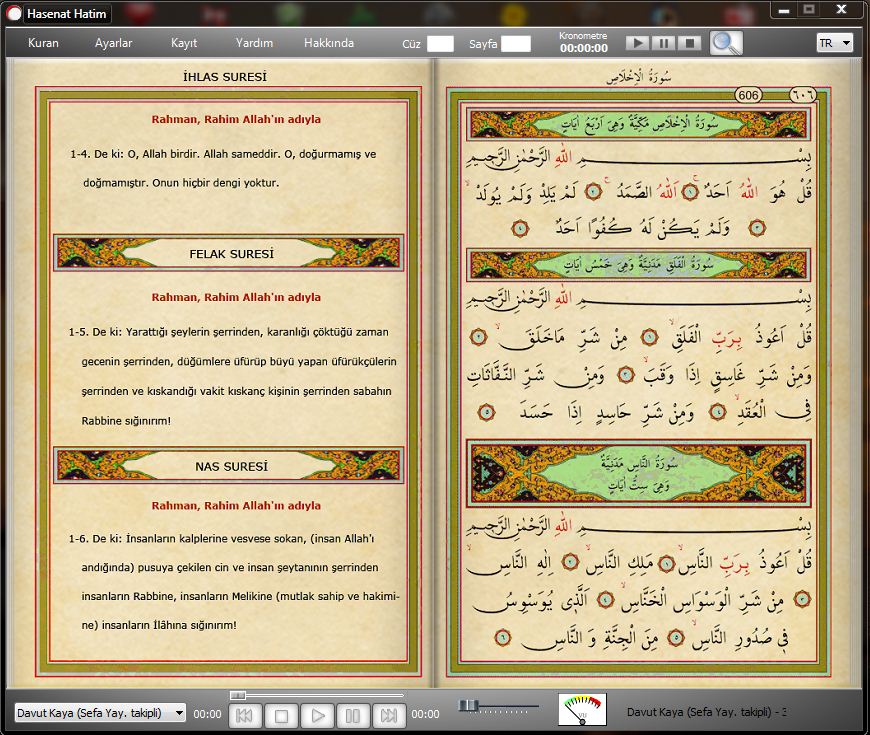 Hasenat Hatim
Kuran Ayarlar Kayıt Yardım Hakkında Cüz Sayfa Kronometre 00:00:00 TR
İHLAS SURESİ
Rahman, Rahim Allah'ın adıyla
1-4. De ki: O, Allah birdir. Allah sameddir. O, doğurmamış ve
doğmamıştır. Onun hiçbir dengi yoktur.
FELAK SURESİ
Rahman, Rahim Allah'ın adıyla
1-5. De ki: Yarattığı şeylerin şerrinden, karanlığı çöktüğü zaman
gecenin şerrinden, düğümlere üfürüp büyü yapan üfürükçülerin
şerrinden ve kıskandığı vakit kıskanç kişinin şerrinden sabahın
Rabbine sığınırım!
NAS SURESİ
Rahman, Rahim Allah'ın adıyla
1-6. De ki: İnsanların kalplerine vesvese sokan, (insan Allah'ı
andığında) pusuya çekilen cin ve insan şeytanının şerrinden
insanların Rabbine, insanların Melikine (mutlak sahip ve hakimi-
ne) insanların İlâhına sığınırım!
سُورَةُ الْاِخْلَاصِ
606 ٦٠٦
سُورَةُ الْاِخْلَاصِ مَكِّيَّةٌ وَهِىَ اَرْبَعُ اٰيَاتٍ
بِسْمِ اللّٰهِ الرَّحْمٰنِ الرَّحِيمِ
قُلْ هُوَ اللّٰهُ اَحَدٌ ١ اَللّٰهُ الصَّمَدُ ٢ لَمْ يَلِدْ وَلَمْ يُولَدْ
٣ وَلَمْ يَكُنْ لَهُ كُفُوًا اَحَدٌ ٤
سُورَةُ الْفَلَقِ مَدَنِيَّةٌ وَهِىَ خَمْسُ اٰيَاتٍ
بِسْمِ اللّٰهِ الرَّحْمٰنِ الرَّحِيمِ
قُلْ اَعُوذُ بِرَبِّ الْفَلَقِ ١ مِنْ شَرِّ مَاخَلَقَ ٢
وَمِنْ شَرِّ غَاسِقٍ اِذَا وَقَبَ ٣ وَمِنْ شَرِّ النَّفَّاثَاتِ
فِى الْعُقَدِ ٤ وَمِنْ شَرِّ حَاسِدٍ اِذَا حَسَدَ ٥
سُورَةُ النَّاسِ مَدَنِيَّةٌ
وَهِىَ سِتُّ اٰيَاتٍ
بِسْمِ اللّٰهِ الرَّحْمٰنِ الرَّحِيمِ
قُلْ اَعُوذُ بِرَبِّ النَّاسِ ١ مَلِكِ النَّاسِ ٢ اِلٰهِ النَّاسِ
٣ مِنْ شَرِّ الْوَسْوَاسِ الْخَنَّاسِ ٤ اَلَّذِى يُوَسْوِسُ
فِى صُدُورِ النَّاسِ ٥ مِنَ الْجِنَّةِ وَ النَّاسِ ٦
Davut Kaya (Sefa Yay. takipli) 00:00 00:00 VU Davut Kaya (Sefa Yay. takipli) -